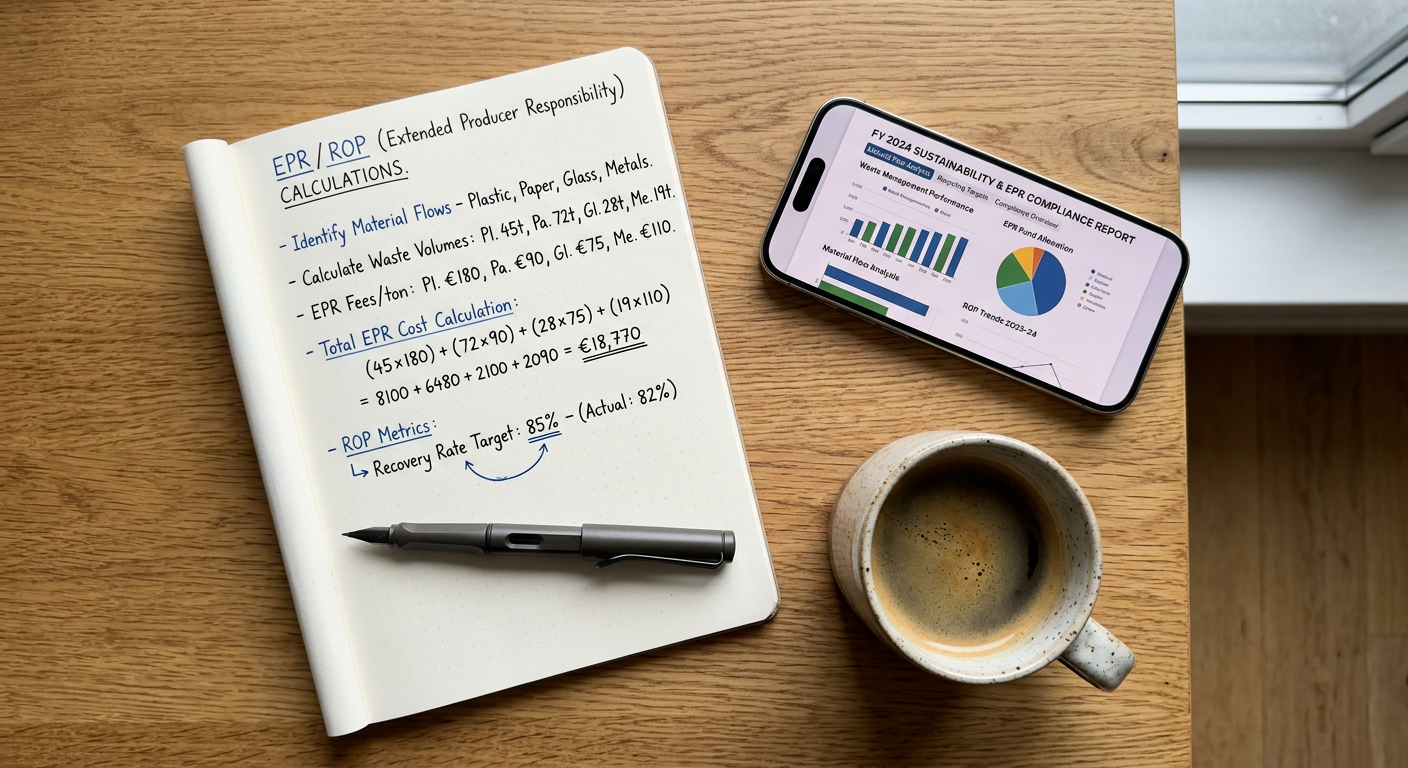 EPR/ROP (Extended Producer Responsibility)
CALCULATIONS.
- Identify Material Flows - Plastic, Paper, Glass, Metals.
- Calculate Waste Volumes: Pl. 45t, Pa. 72t, Gl. 28t, Me. 19t.
- EPR Fees/ton: Pl. €180, Pa. €90, Gl. €75, Me. €110.
- Total EPR Cost Calculation:
(45x180) + (72x90) + (28x75) + (19x110)
= 8100 + 6480 + 2100 + 2090 = €18,770
- ROP Metrics:
↳ Recovery Rate Target: 85% - (Actual: 82%)
FY 2024 SUSTAINABILITY & EPR COMPLIANCE REPORT
Material Flow Analysis Recycling Targets Compliance Overview
Waste Management Performance
EPR Fund Allocation
Material Flow Analysis
ROP Trends 2023-24